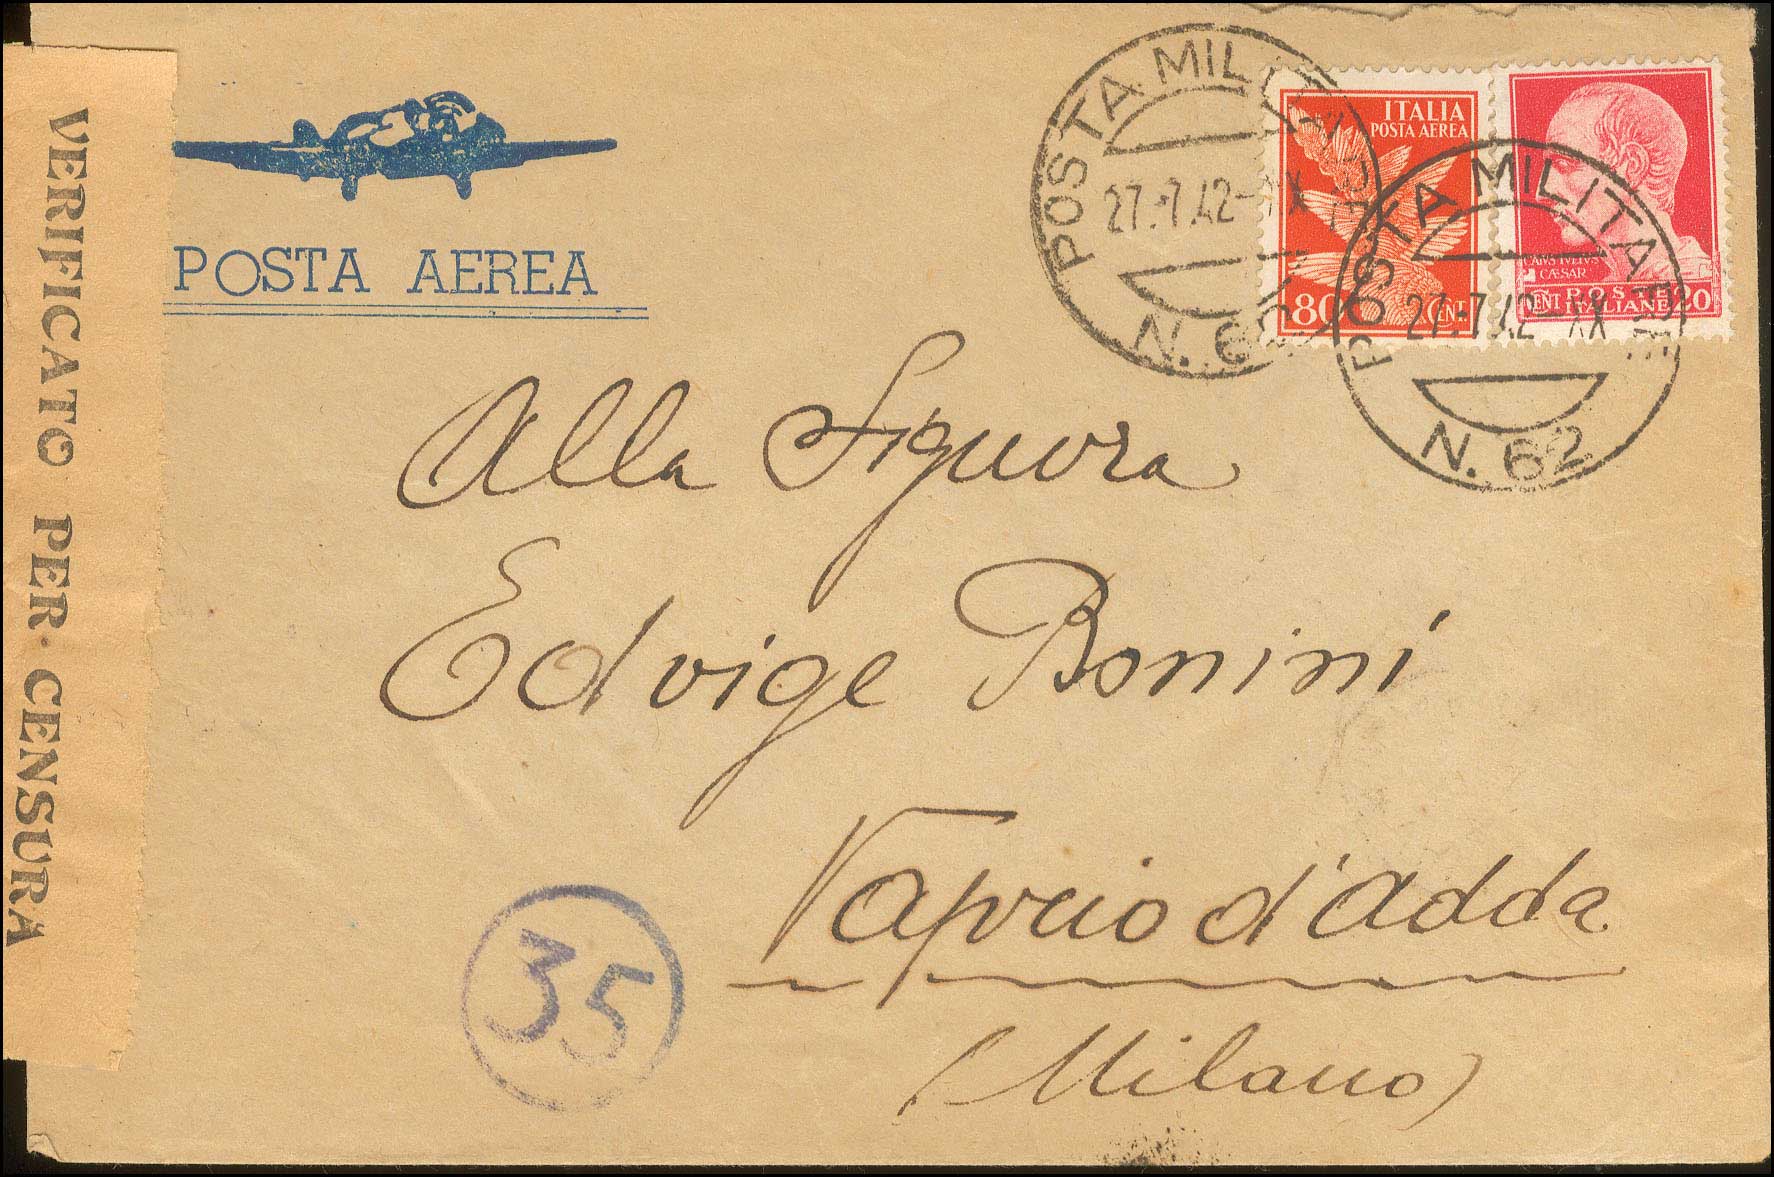 VERIFICATO PER CENSURA
POSTA AEREA
POSTA MILITARE
27.7.42-XX
N. 62
ITALIA
POSTA AEREA
80 CENT.
CAIVS IVLIVS
CÆSAR
CENT POSTE 20
ITALIANE
POSTA MILITARE
27.7.42-XX
N. 62
Alla Signora
Edvige Bonini
Vaprio d'Adda
(Milano)
35